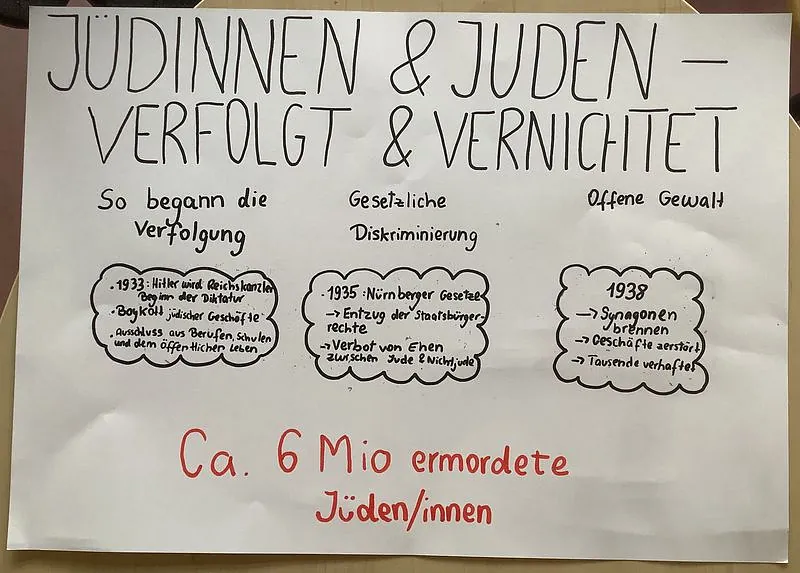 JÜDINNEN & JUDEN –
VERFOLGT & VERNICHTET
So begann die
Verfolgung
· 1933: Hitler wird Reichskanzler
Beginn der Diktatur
· Boykott jüdischer Geschäfte
· Ausschluss aus Berufen, Schulen
und dem öffentlicher Leben
Gesetzliche
Diskriminierung
· 1935: Nürnberger Gesetze
→ Entzug der Staatsbürger-
rechte
→ Verbot von Ehen
zwischen Jude & Nichtjude
Offene Gewalt
1938
→ Synagonen
brennen
→ Geschäfte zerstört
→ Tausende verhaftet
Ca. 6 Mio ermordete
Jüden/innen